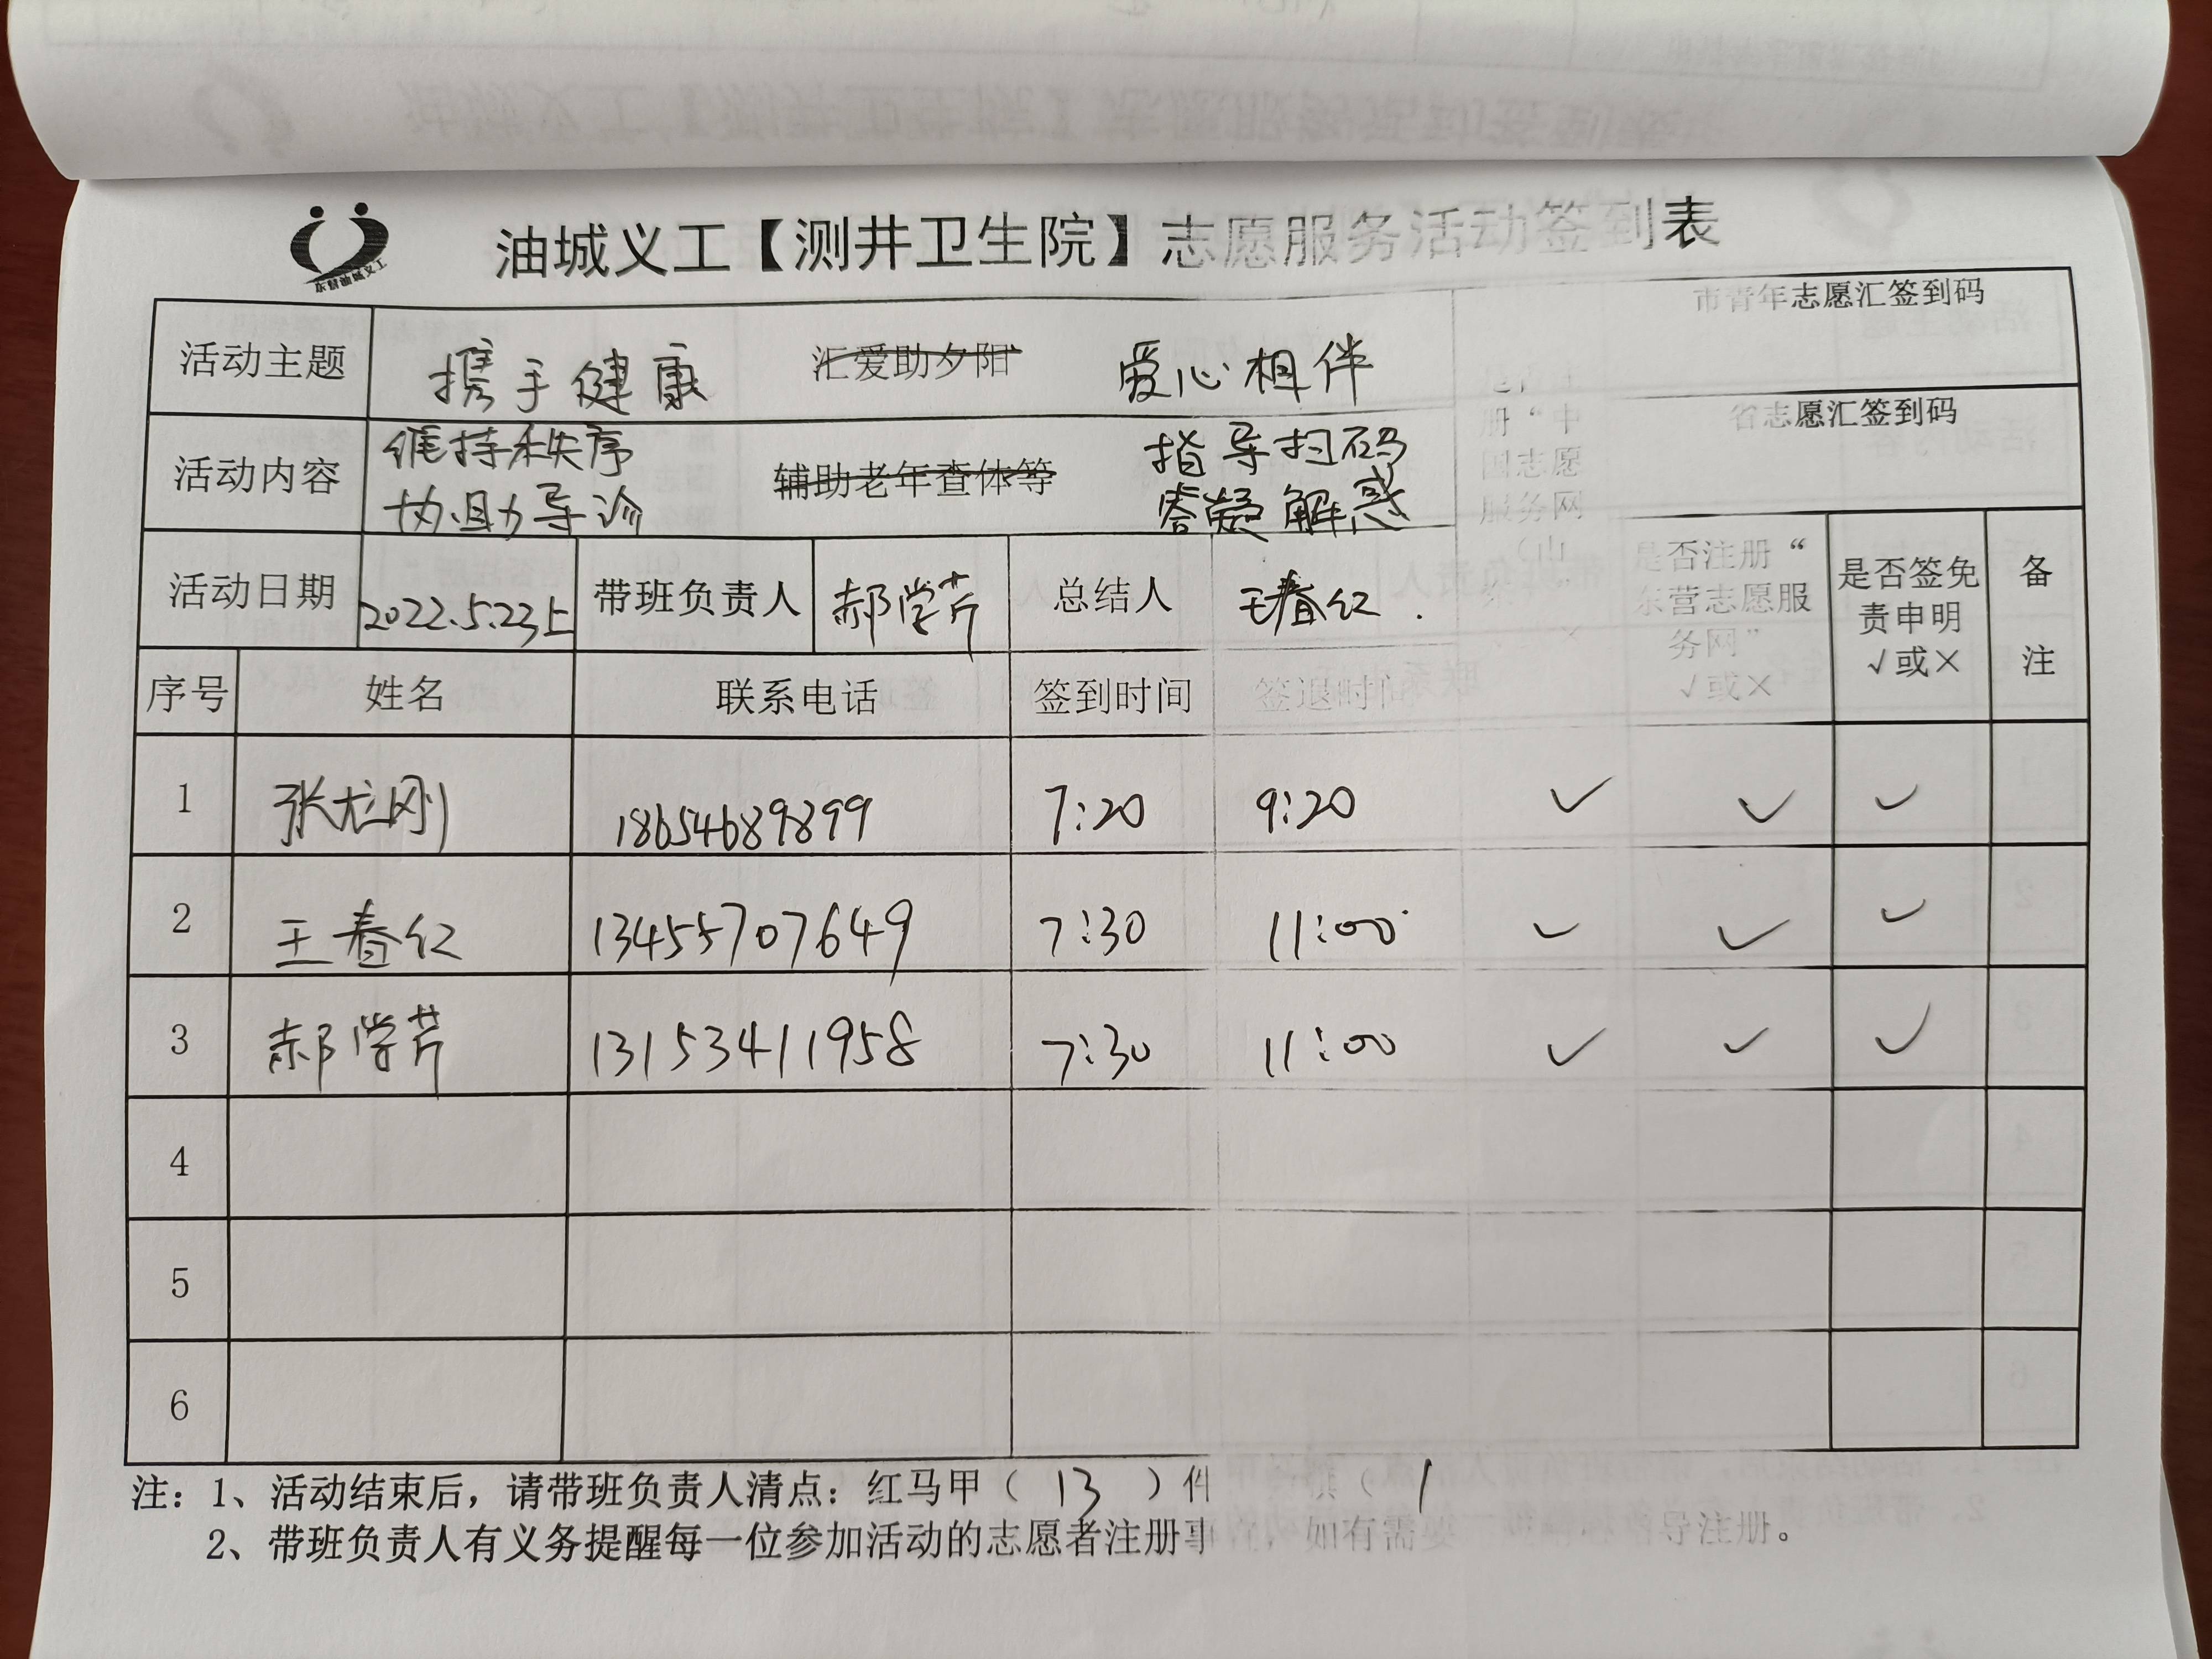 油城义工【测井卫生院】志愿服务活动签到表
东营油城义工
市青年志愿汇签到码
活动主题 携手健康 汇爱助夕阳 爱心相伴
省志愿汇签到码
活动内容 维持秩序 辅助老年查体等 指导扫码
协助导诊 答疑解惑
册“中
国志愿
服务网
（山
活动日期 2022.5.23上 带班负责人 郝学芹 总结人 王春红
是否注册“
东营志愿服
务网”
√或×
是否签免
责申明
√或×
备
注
序号 姓名 联系电话 签到时间 签退时间
1 张龙刚 18654689899 7:20 9:20 ✓ ✓ ✓
2 王春红 13455707649 7:30 11:00 ✓ ✓ ✓
3 郝学芹 13153411958 7:30 11:00 ✓ ✓ ✓
4
5
6
注：1、活动结束后，请带班负责人清点：红马甲（ 13 ）件 旗（ 1
2、带班负责人有义务提醒每一位参加活动的志愿者注册事 如有需要 导注册。